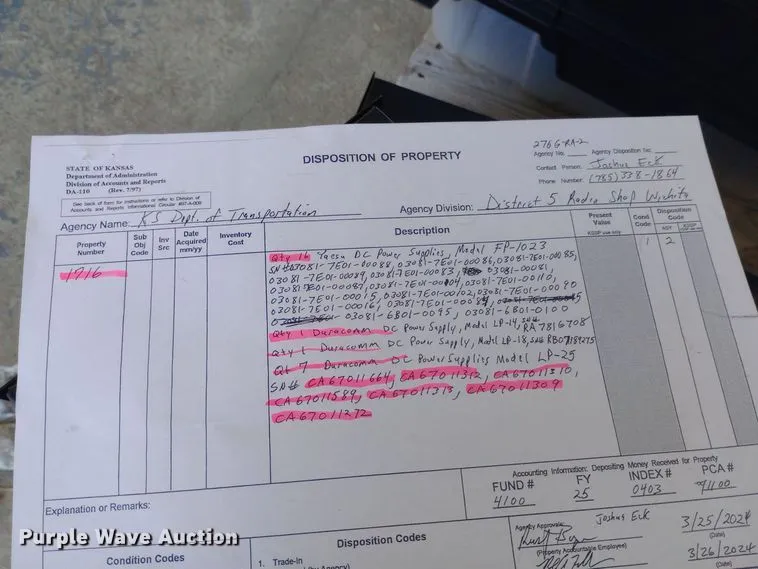 STATE OF KANSAS
Department of Administration
Division of Accounts and Reports
DA-110 (Rev. 7/97)
See back of form for instructions or refer to Division of
Accounts and Reports Informational Circular #07-A-009
DISPOSITION OF PROPERTY
276G-RA-2
Agency No. Agency Disposition No:
Contact Person: Joshua Eck
Phone Number: (785) 338-1864
Agency Name: KS Dept. of Transportation
Agency Division: District 5 Radio Shop Wichita
Property Number
Sub Obj Code
Inv Src
Date Acquired mm/yy
Inventory Cost
Description
Present Value
KSSP use only
Cond Code
Disposition Code
AGY
KSSP use only
1716
1 2
Qty 16 Yaesu DC Power Supplies, Model FP-1023
SN# 03081-7E01-00088, 03081-7E01-00086, 03081-7E01-00085,
03081-7E01-00089, 03081-7E01-00083, 03081-00081,
03081-7E01-00087, 03081-7E01-00104, 03081-7E01-00110,
03081-7E01-00015, 03081-7E01-00102, 03081-7E01-00090
03081-7E01-00016, 03081-7E01-00084,
03081-6B01-0095, 03081-6B01-0100
Qty 1 Duracomm DC Power Supply, Model LP-14, SN# RA7816708
Qty 1 Duracomm DC Power Supply, Model LP-18, SN# RB07189275
Qt 7 Duracomm DC Power Supplies Model LP-25
SN# CA67011664, CA67011312, CA67011310,
CA67011589, CA67011313, CA67011309
CA67011272
Accounting Information: Depositing Money Received for Property
FUND # FY INDEX # PCA #
4100 25 0403 91100
Explanation or Remarks:
Agency Approval:
Joshua Eck 3/25/2024
(Date)
(Property Accountable Employee)
3/26/2024
(Date)
Condition Codes
Disposition Codes
1. Trade-In
Purple Wave Auction